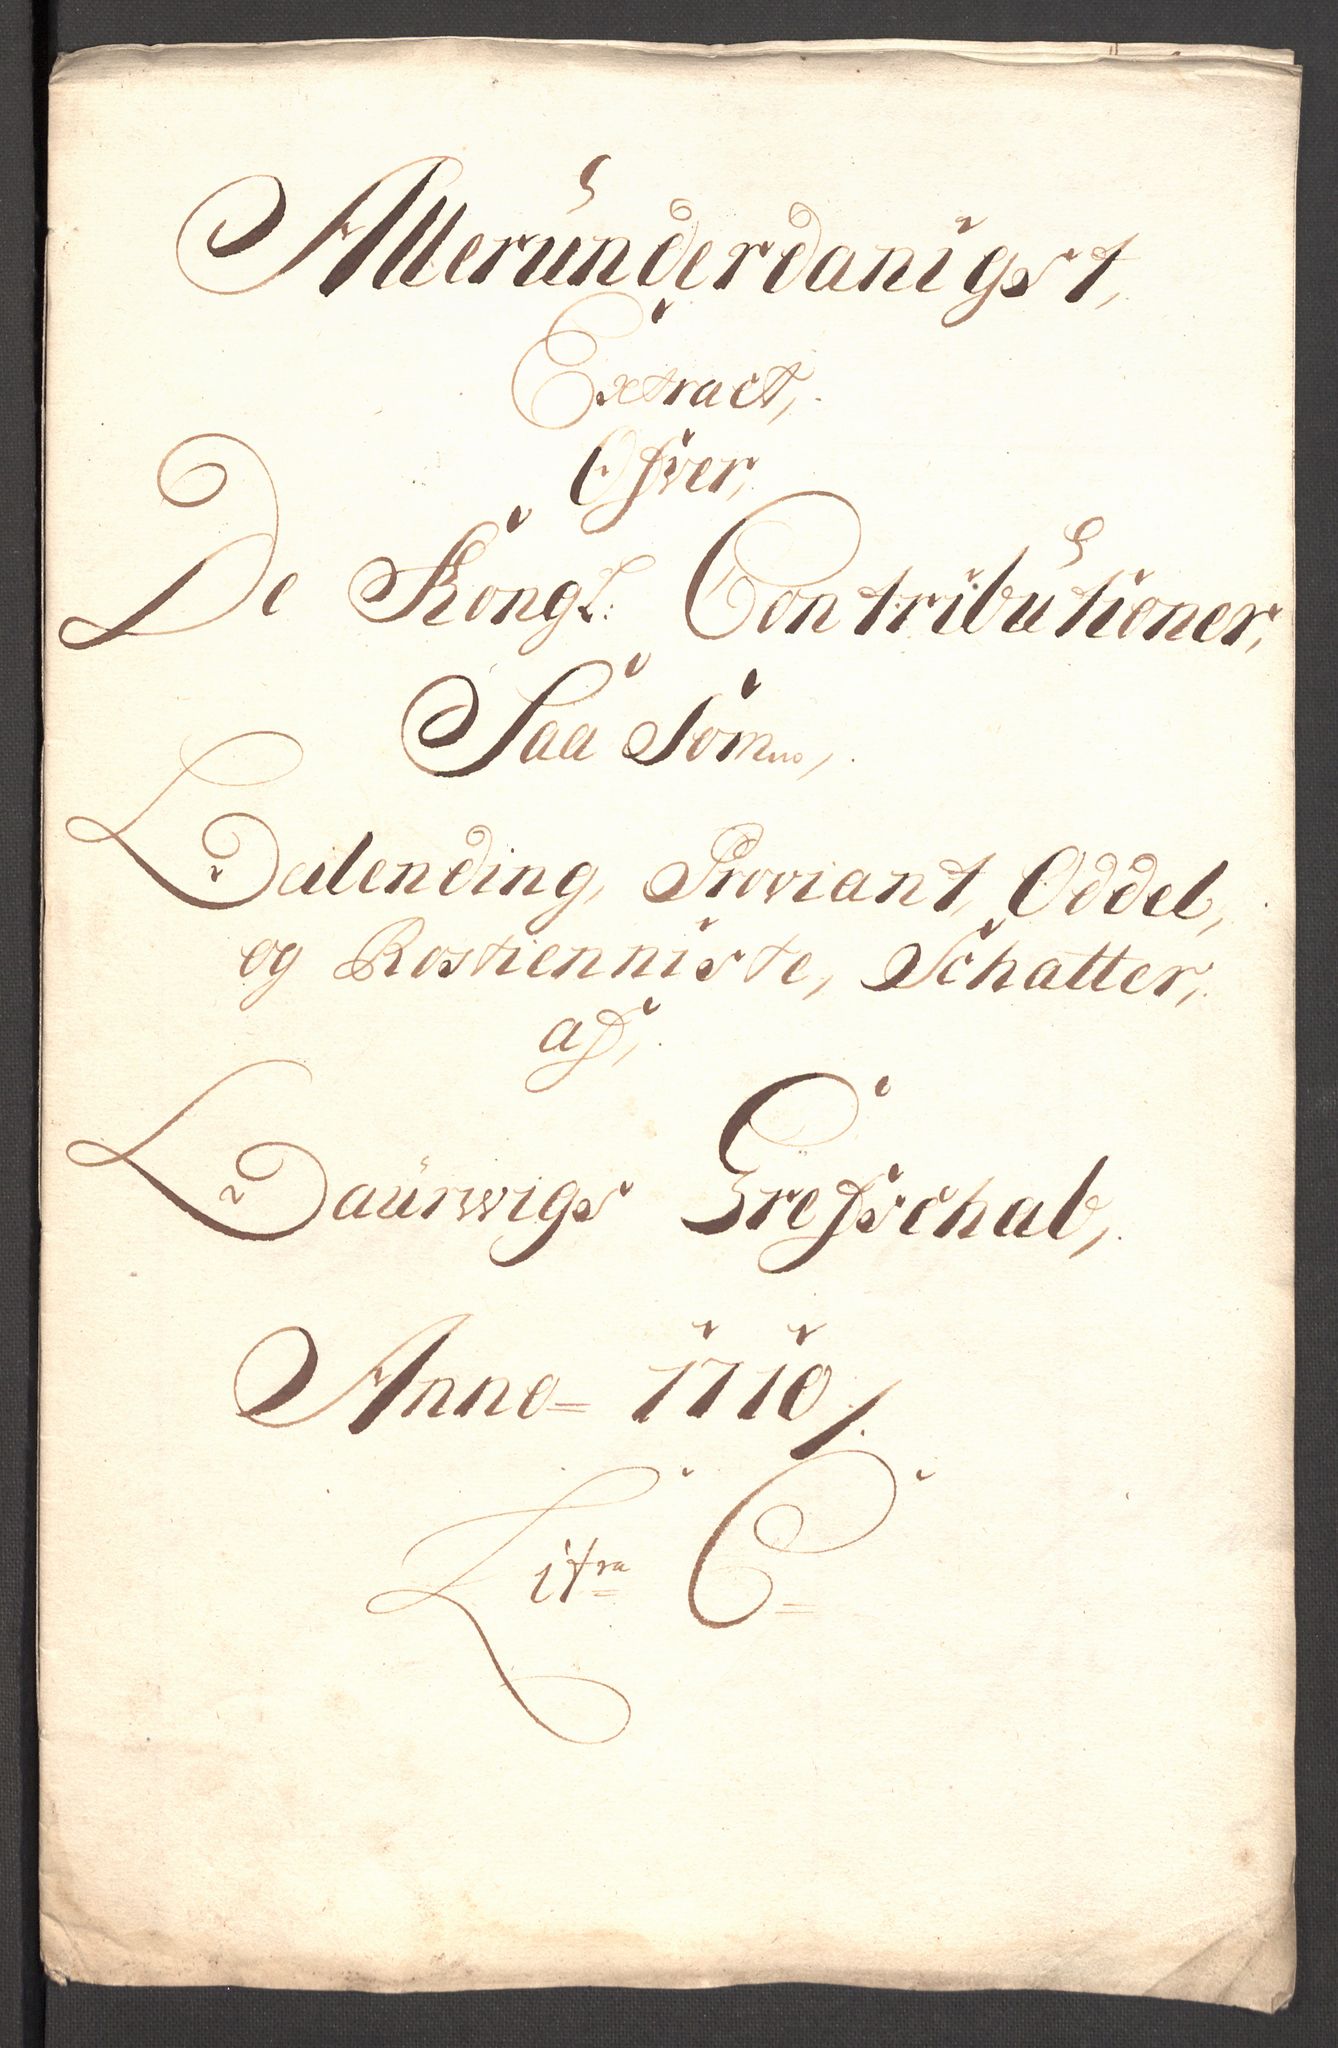 Alleründerdanigst,
Extract,
Ofver,
De Kongl: Contributioner,
Saa Som,
Leilending, Proviant, Oddel,
og Rostienniste, Schatter,
af,
Laürwigs Grefschab,
Anno= 1710/.
Litra C=